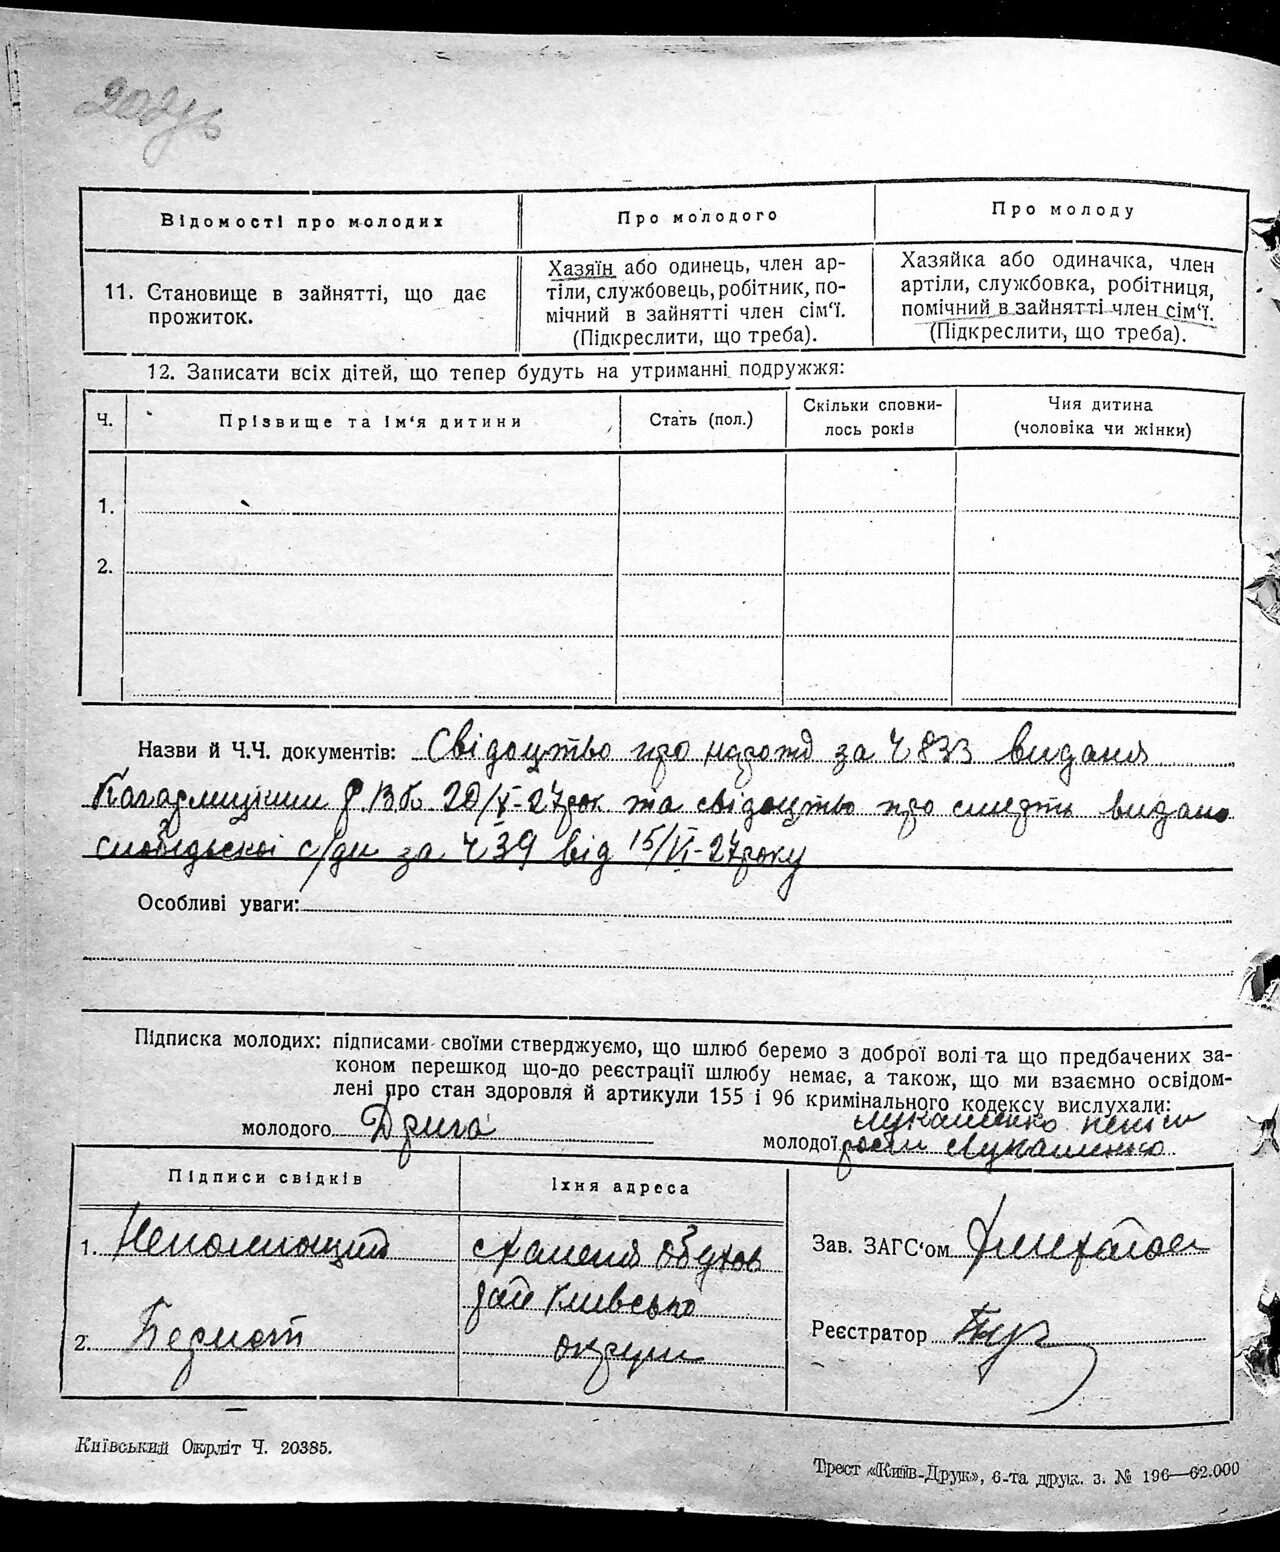 Відомості про молодих
Про молодого
Про молоду
11. Становище в зайнятті, що дає
прожиток.
Хазяїн або одинець, член ар-
тіли, службовець, робітник, по-
мічний в зайнятті член сім'ї.
(Підкреслити, що треба).
Хазяйка або одиначка, член
артіли, службовка, робітниця,
помічний в зайнятті член сім'ї.
(Підкреслити, що треба).
12. Записати всіх дітей, що тепер будуть на утриманні подружжя:
Ч.
Прізвище та ім'я дитини
Стать (пол.)
Скільки сповни-
лось років
Чия дитина
(чоловіка чи жінки)
1.
2.
Назви й Ч.Ч. документів: Свідоцтво про нарожд за Ч 833 видання
Кагарлицьким РВК 20/V-27 рок та свідоцтво про смерть видано
с/ди за Ч 39 від 15/VI-27 року
Особливі уваги:
Підписка молодих: підписами своїми стверджуємо, що шлюб беремо з доброї волі та що предбачених за-
коном перешкод що-до реєстрації шлюбу немає, а також, що ми взаємно освідом-
лені про стан здоровля й артикули 155 і 96 кримінального кодексу вислухали:
молодого Дрига
Лукашенко
молодої Лукашенко
Підписи свідків
Їхня адреса
1. Непомнящий
Обухов
рай Київсько
2.
округи
Зав. ЗАГС'ом
Реєстратор
Київський Окрліт Ч. 20385.
Трест «Київ-Друк», 6-та друк. з. № 196—62.000